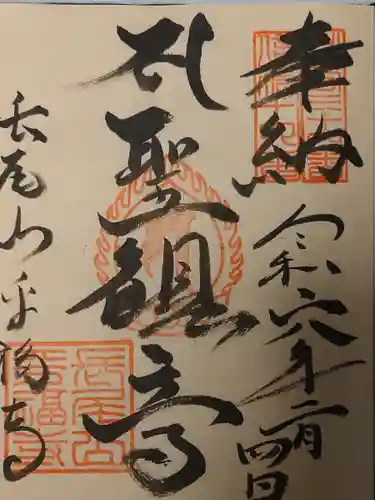 奉納
令和六年二月
四日
聖観音
長尾山平福寺